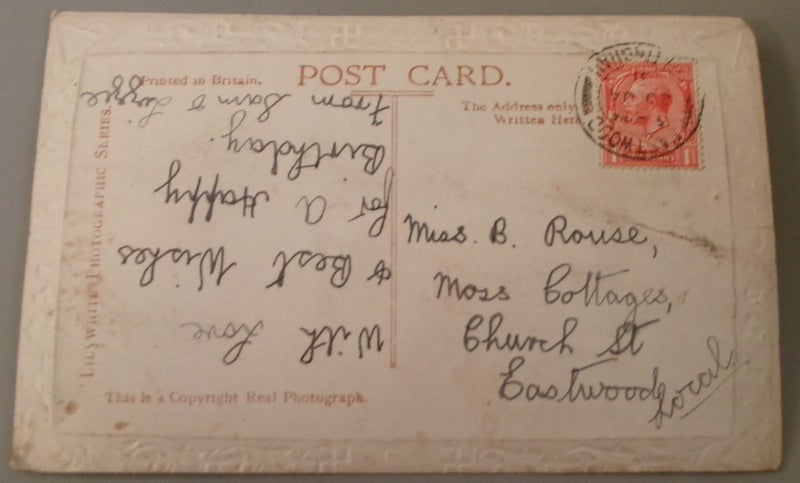 Printed in Britain.
POST CARD.
The Address only
Written Here.
LILYWHITE PHOTOGRAPHIC SERIES.
This is a Copyright Real Photograph.
With Love
& Best Wishes
for a Happy
Birthday.
From Sam & Lizzie
Miss. B. Rouse,
Moss Cottages,
Church St
Eastwood
Local
EASTWOOD
1 1